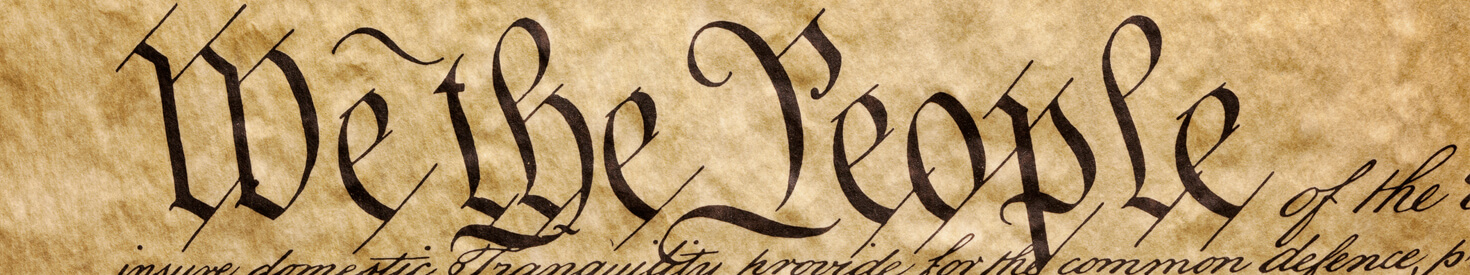 We the People of the
insure domestic Tranquility provide for the common defence,